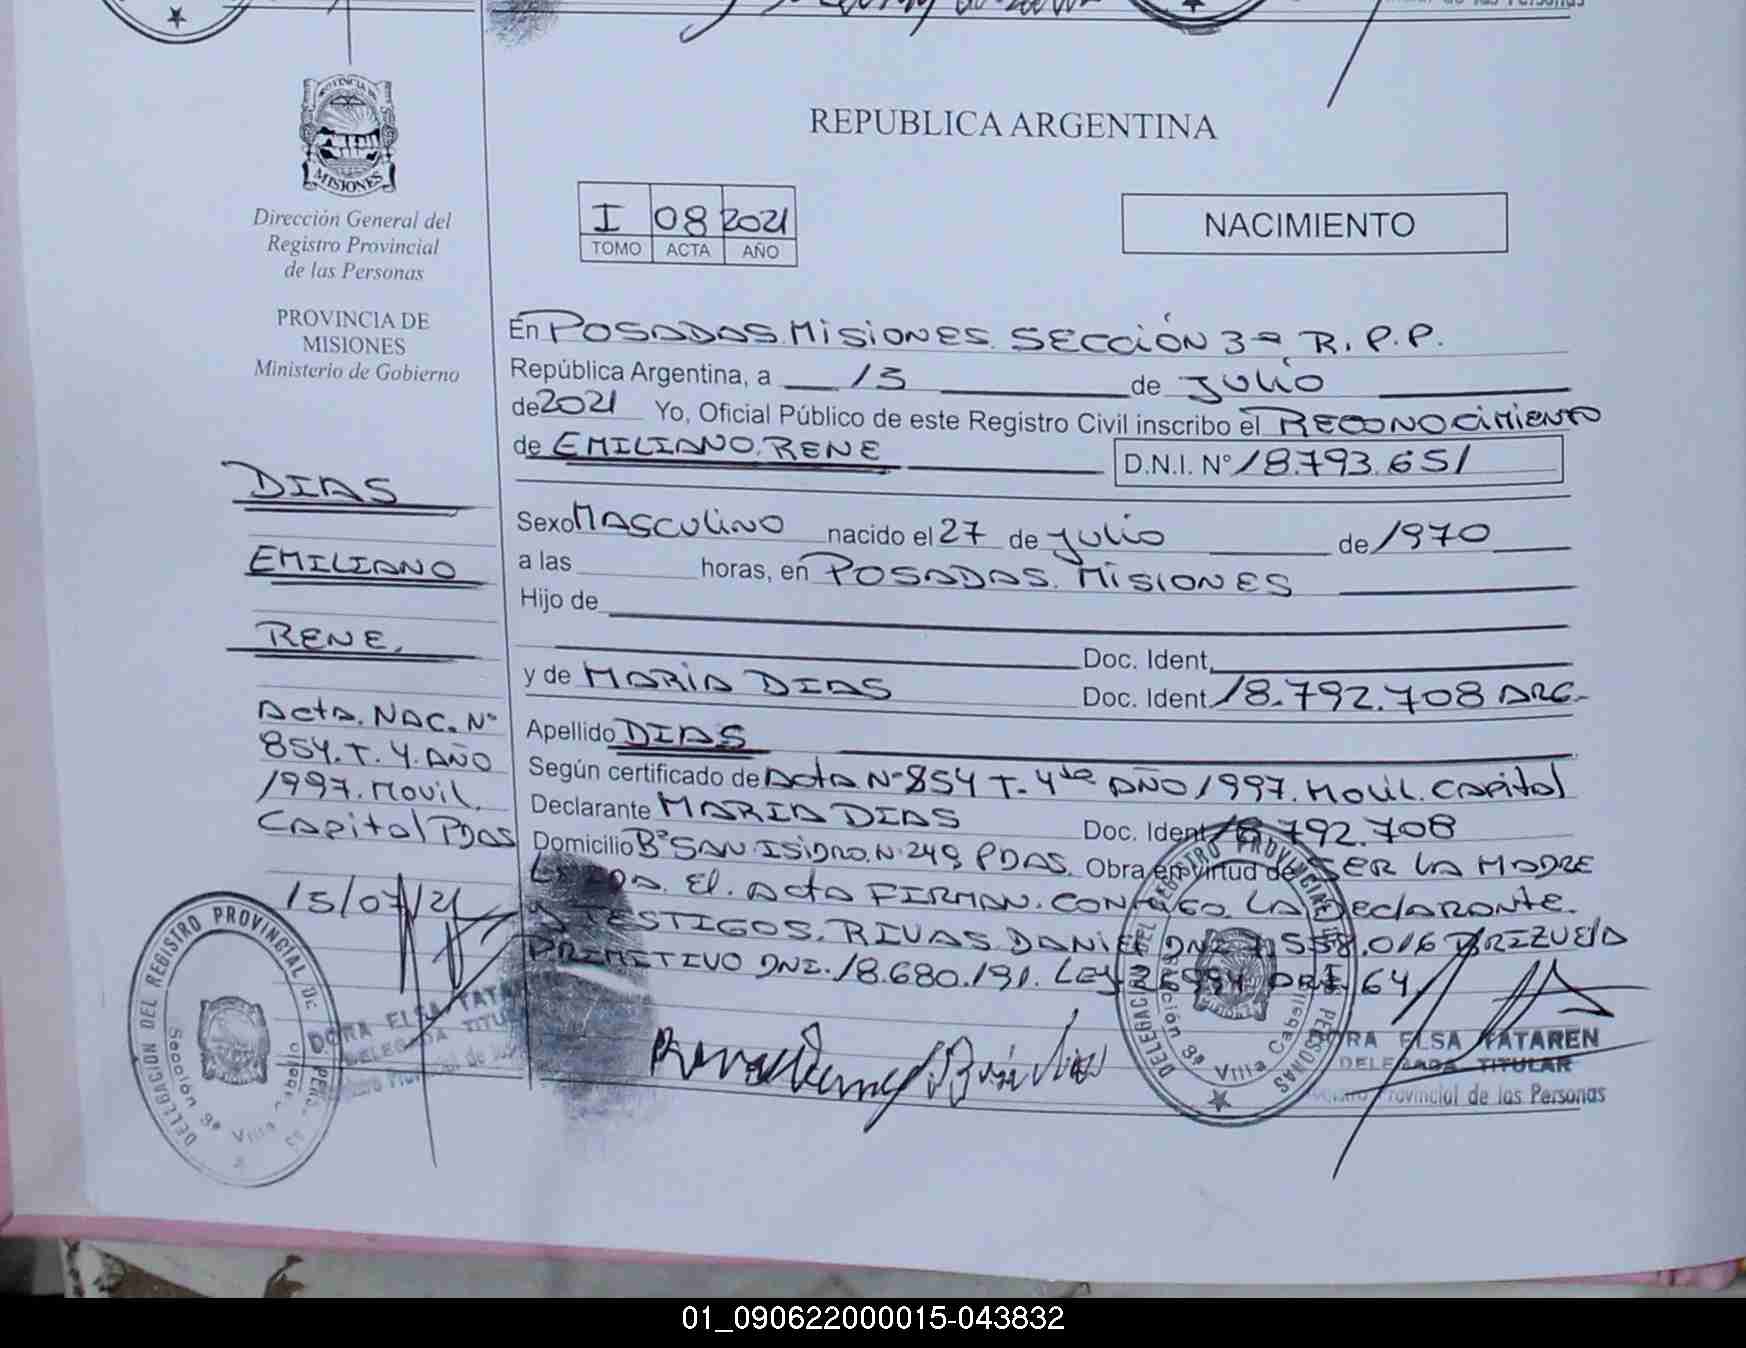 PROVINCIA DE
MISIONES
Dirección General del
Registro Provincial
de las Personas
PROVINCIA DE
MISIONES
Ministerio de Gobierno
DIAS
EMILIANO
RENE.
Acta. NAC. Nº
854. T. 4. AÑO
1997. Movil.
Capital PDAS
15/07/21
REPUBLICA ARGENTINA
I 08 2021
TOMO ACTA AÑO
NACIMIENTO
En POSADAS. MISIONES. SECCIÓN 3ª R. P. P.
República Argentina, a 15 de JULIO
de 2021 Yo, Oficial Público de este Registro Civil inscribo el RECONOCIMIENTO
de EMILIANO. RENE D.N.I. Nº 18.793.651
Sexo MASCULINO nacido el 27 de JULIO de 1970
a las horas, en POSADAS. MISIONES
Hijo de
Doc. Ident.
y de MARIA DIAS Doc. Ident. 18.792.708 ARG.
Apellido DIAS
Según certificado de Acta Nº 854 T. 4to AÑO 1997. Movil. Capital
Declarante MARIA DIAS Doc. Ident. 18.792.708
Domicilio Bº SAN ISIDRO. Nº 249, PDAS. Obra en virtud de SER LA MADRE
LEIDA. El. Acta FIRMAN. CONMIGO. LA DeclaRante.
Y TESTIGOS. RIVAS DANIEL DNI 558.016 BRIZUELA
PRIMITIVO DNI. 18.680.191. LEY 26994 ART. 64.
DELEGACIÓN DEL REGISTRO PROVINCIAL DE
Sección 3ª Villa Cabello
DORA ELSA TATAREN
DELEGADA TITULAR
DELEGACIÓN DEL REGISTRO PROVINCIAL DE LAS PERSONAS
Sección 3ª Villa Cabello
DORA ELSA TATAREN
DELEGADA TITULAR
Registro Provincial de las Personas
01_090622000015-043832